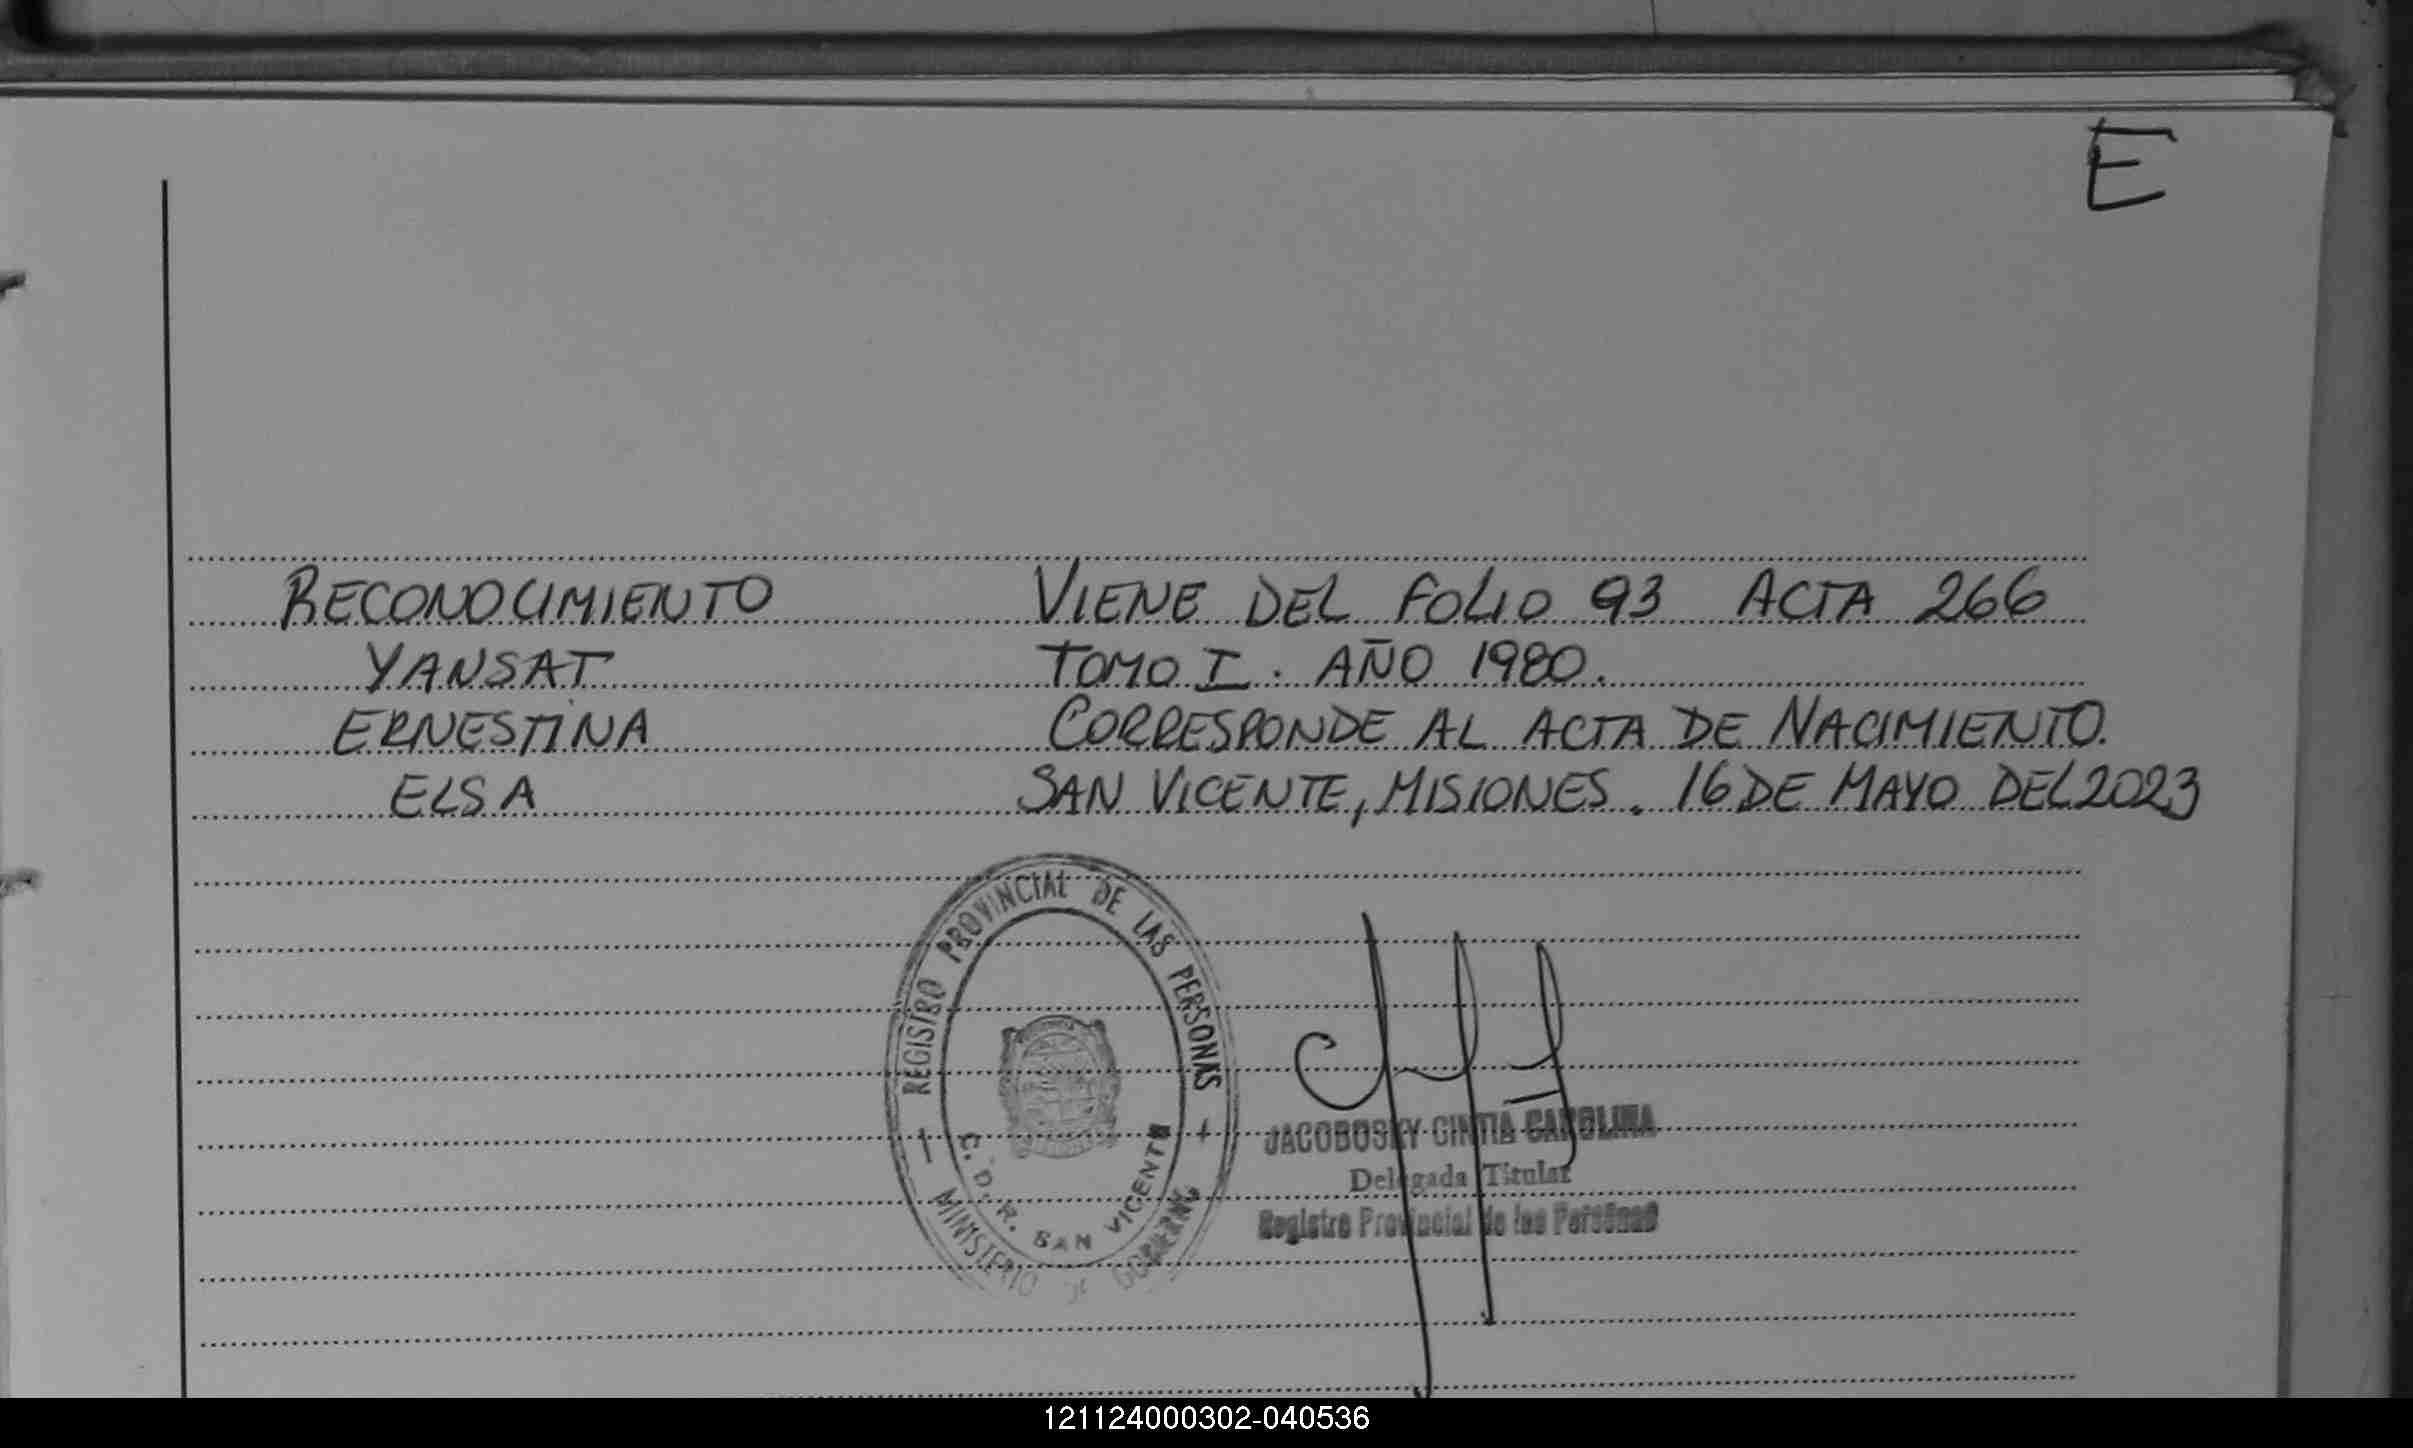 E
RECONOCIMIENTO VIENE DEL FOLIO 93 ACTA 266
YANSAT TOMO I. AÑO 1980.
ERNESTINA CORRESPONDE AL ACTA DE NACIMIENTO.
ELSA SAN VICENTE, MISIONES. 16 DE MAYO DEL 2023
REGISTRO PROVINCIAL DE LAS PERSONAS
C. D. R. SAN VICENTE
MINISTERIO DE GOBIERNO
JACOBOSKY CINTIA CAROLINA
Delegada Titular
Registro Provincial de las Personas
121124000302-040536